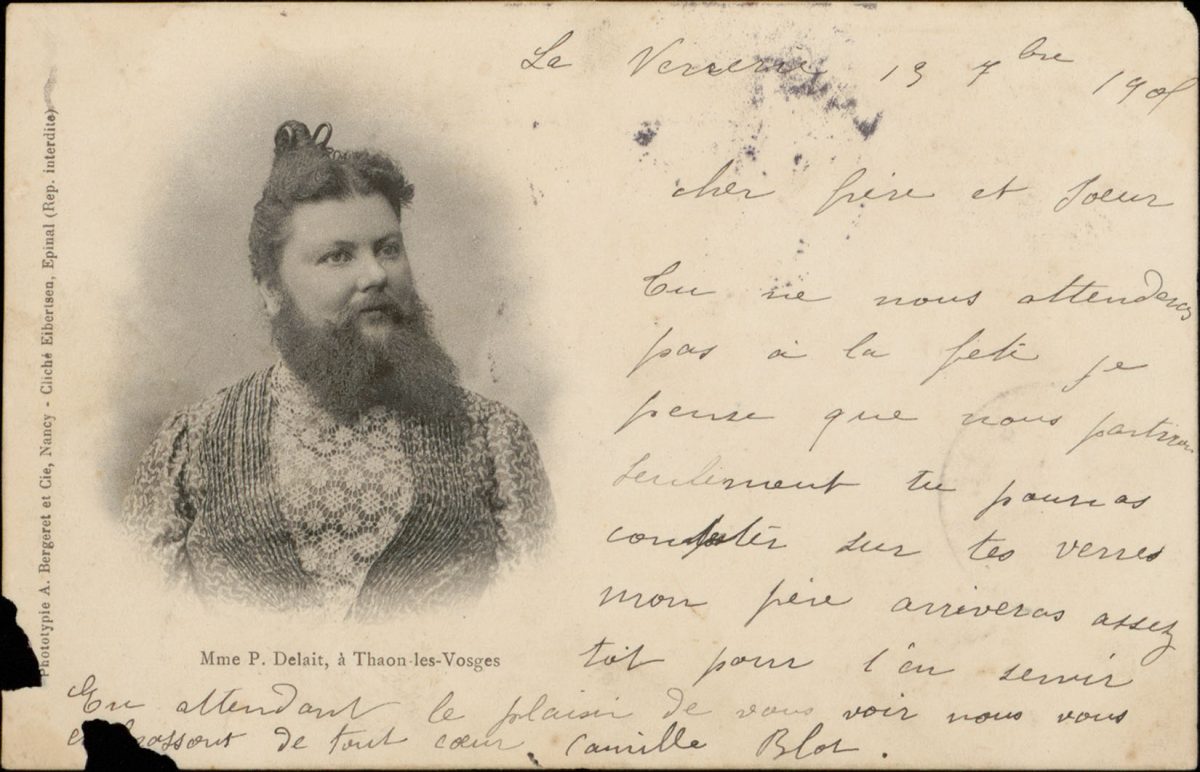 La Verrerie 13 7bre 190
cher frère et Soeur
Tu ne nous attenderas
pas à la fete je
pense que nous partiron
seulement tu pourras
conster sur tes verres
mon père arriveras assez
tot pour t'en servir
En attendant le plaisir de vous voir nous vous
embrassont de tout cœur Camille Blot.
Mme P. Delait, à Thaon-les-Vosges
Phototypie A. Bergeret et Cie, Nancy - Cliché Eibertsen, Epinal (Rep. interdite)